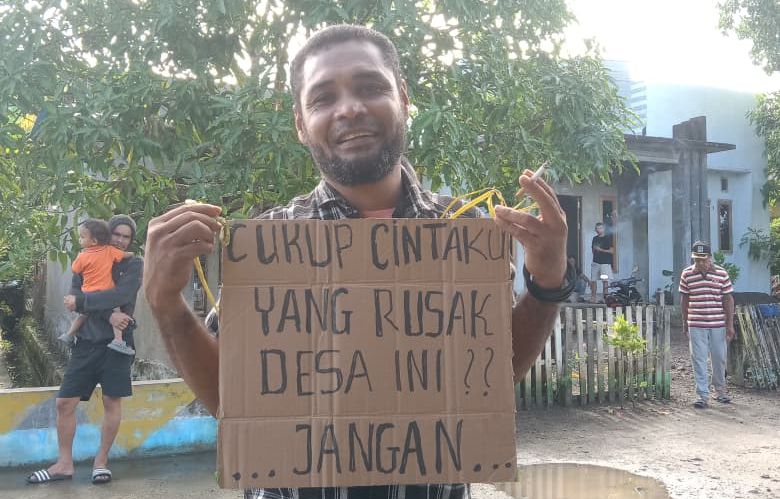 CUKUP CINTAKU
YANG RUSAK
DESA INI ??
... JANGAN ...